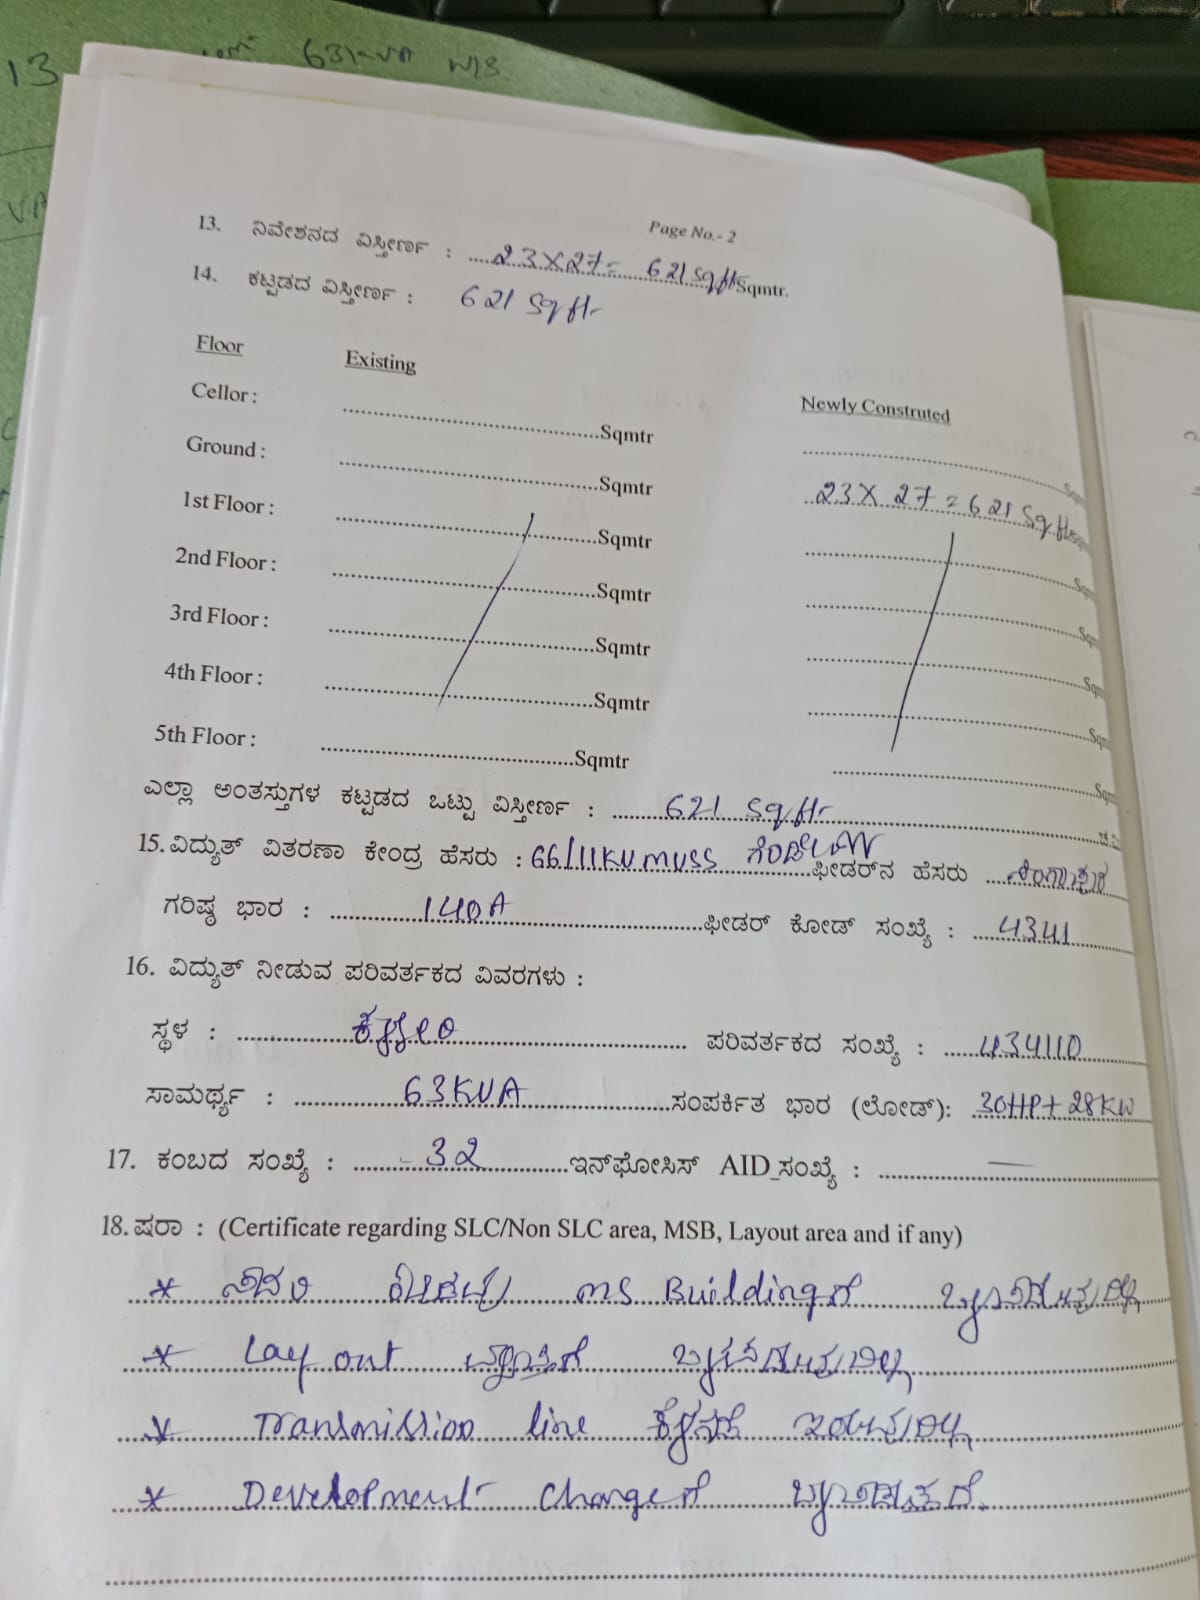 13 631-VA W/S
VA
Page No.- 2
13. ನಿವೇಶನದ ವಿಸ್ತೀರ್ಣ : 23 X 27 = 621 Sqft Sqmtr.
14. ಕಟ್ಟಡದ ವಿಸ್ತೀರ್ಣ : 621 Sqft-
Floor Existing Newly Construted
Cellor : Sqmtr
Ground : Sqmtr 23 X 27 = 621 Sqft
1st Floor : Sqmtr
2nd Floor : Sqmtr
3rd Floor : Sqmtr
4th Floor : Sqmtr
5th Floor : Sqmtr
ಎಲ್ಲಾ ಅಂತಸ್ತುಗಳ ಕಟ್ಟಡದ ಒಟ್ಟು ವಿಸ್ತೀರ್ಣ : 621 Sqft-
15. ವಿದ್ಯುತ್ ವಿತರಣಾ ಕೇಂದ್ರ ಹೆಸರು : 66/11KV MUSS ಫೀಡರ್‌ನ ಹೆಸರು
ಗರಿಷ್ಠ ಭಾರ : 140A ಫೀಡರ್ ಕೋಡ್ ಸಂಖ್ಯೆ : 4341
16. ವಿದ್ಯುತ್ ನೀಡುವ ಪರಿವರ್ತಕದ ವಿವರಗಳು :
ಸ್ಥಳ : ಪರಿವರ್ತಕದ ಸಂಖ್ಯೆ : 434110
ಸಾಮರ್ಥ್ಯ : 63KVA ಸಂಪರ್ಕಿತ ಭಾರ (ಲೋಡ್): 30HP+28KW
17. ಕಂಬದ ಸಂಖ್ಯೆ : 32 ಇನ್‌ಫೋಸಿಸ್ AID_ಸಂಖ್ಯೆ : —
18. ಷರಾ : (Certificate regarding SLC/Non SLC area, MSB, Layout area and if any)
* ಸದರಿ ಕಟ್ಟಡವು MS Buildingಗೆ
* Lay out ವ್ಯಾಪ್ತಿಗೆ
* Transmission line ಕೆಳಗಡೆ ಇರುವುದಿಲ್ಲ
* Development Chargeಗೆ